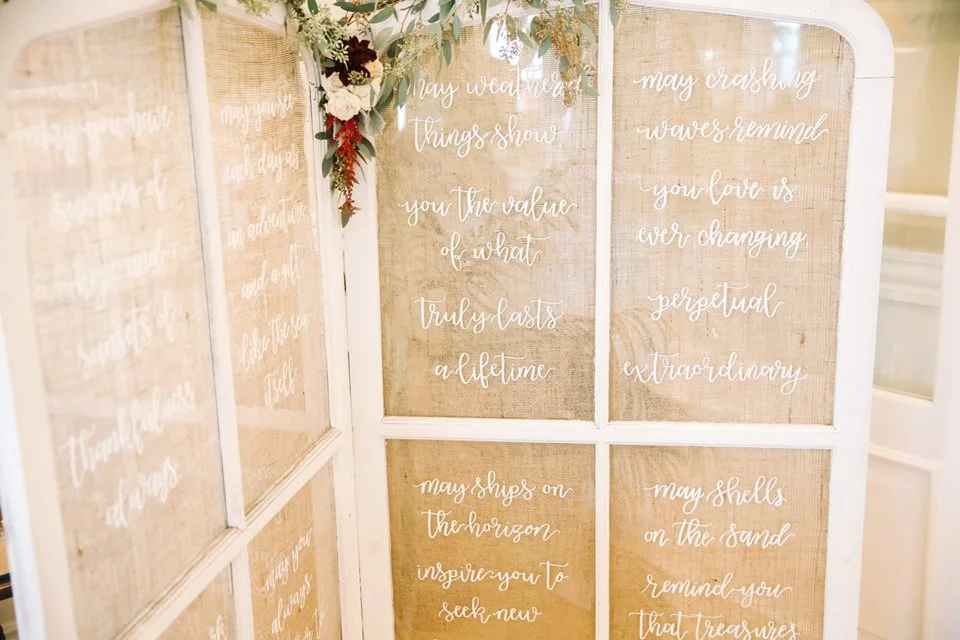 may you have
sunrises of
hope and
sunsets of
thankfulness
always
may you see
each day as
an adventure
and a gift
like the sea
itself
may weathered
things show
you the value
of what
truly lasts
a lifetime
may crashing
waves remind
you love is
ever changing
perpetual
&
extraordinary
may you
always
may ships on
the horizon
inspire you to
seek new
may shells
on the sand
remind you
that treasures